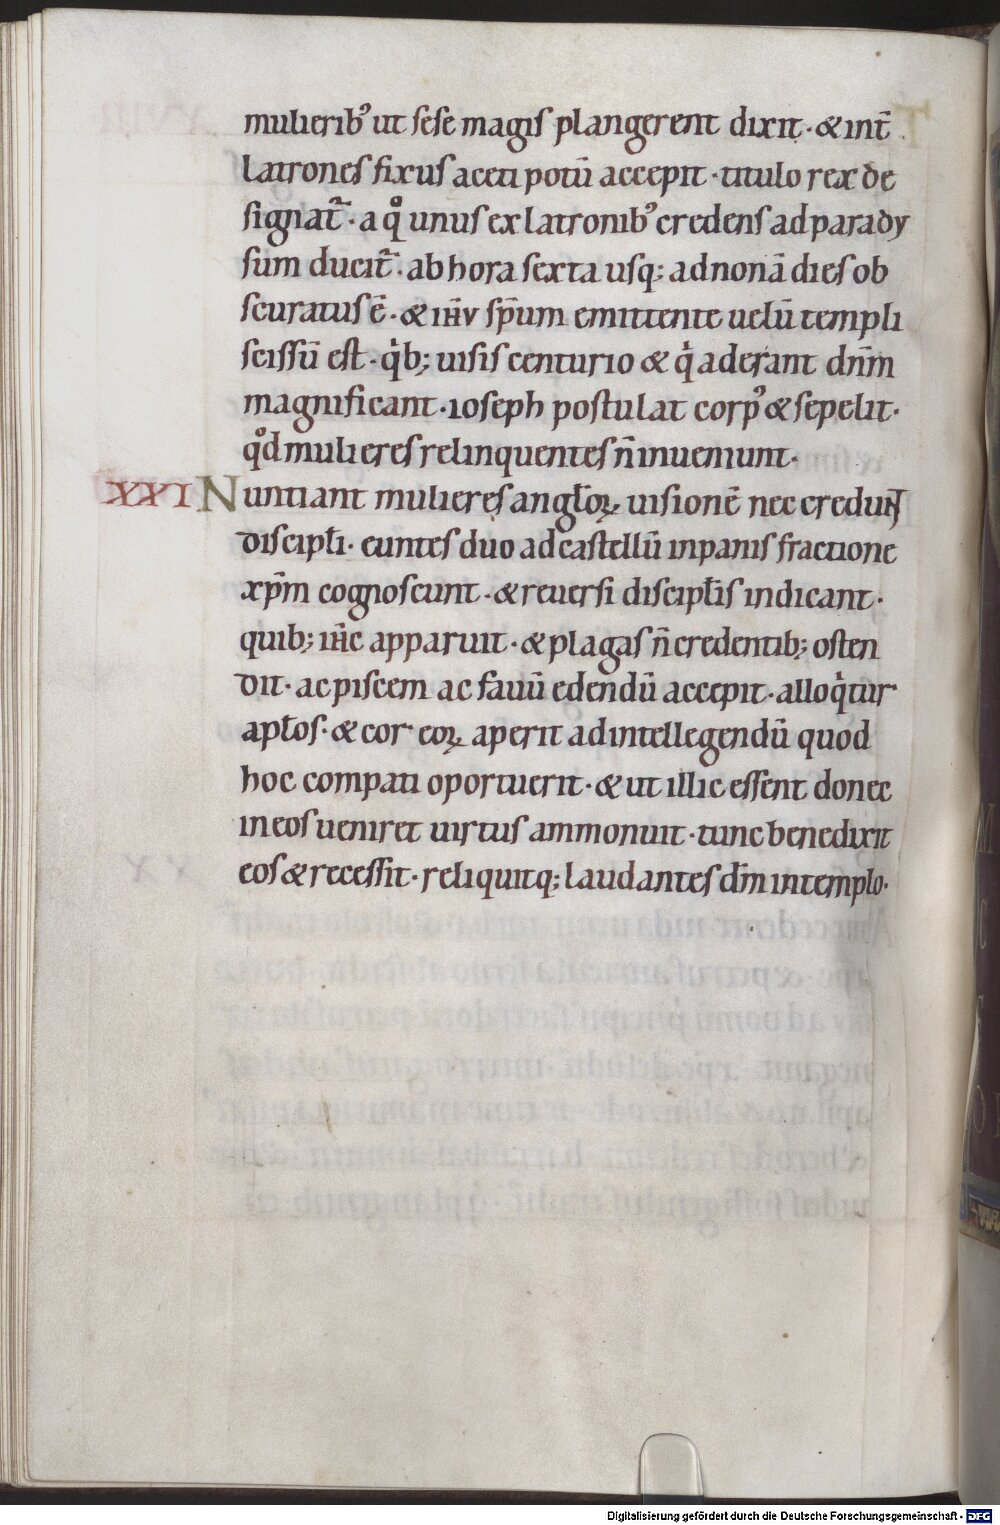 mulierib᾽ ut sese magis plangerent dixit · & int̄
latrones fixus aceti potū accepit · titulo rex de
signat᷑ · a qͦ unus ex latronib᾽ credens ad parady
sum ducit᷑ · ab hora sexta usq; ad nonā dies ob
scuratus ē · & ih̄v sp̄um emittente uelū templi
scissū est · qͥb; uisis centurio & qͥ aderant dn̄m
magnificant · ioseph postulat corp᾽ & sepelit ·
qͦd mulieres relinquentes n̄ inueniunt ·
XXI Nuntiant mulieres anglo̵ꝝ uisionē nec credunt
discipl̵i · euntes duo ad castellū in panis fractione
xp̄m cognoscunt · & reuersi discipl̵is indicant ·
quib; ih̄c apparuit · & plagas n̄ credentib; osten
dit · ac piscem ac fauū edendū accepit · alloqͥtur
apl̵os · & cor eoꝝ aperit ad intellegendū quod
hoc compati oportuerit · & ut illic essent donec
in eos ueniret uirtus ammonuit · tunc benedixit
eos & recessit · reliquitq; laudantes dm̄ in templo ·
Digitalisierung gefördert durch die Deutsche Forschungsgemeinschaft - DFG